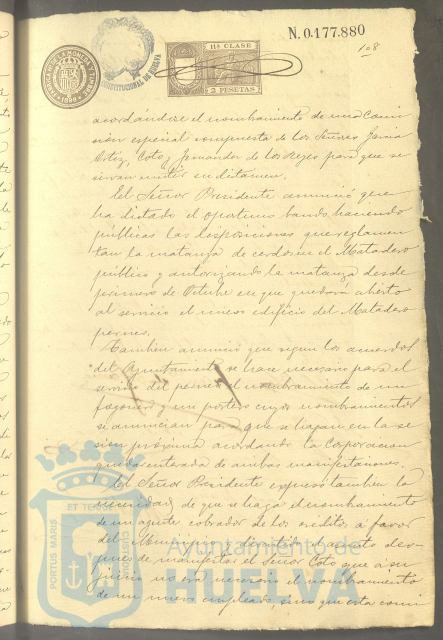 N.0.177.880
108
11ª CLASE
2 PESETAS
CONSTITUCIONAL DE HUELVA
acordándose el nombramiento de una Comi
sión especial compuesta de los Señores García
Ortiz, Coto y Fernandez de los Reyes para que se
sirvan emitir su dictamen.
El Señor Presidente anunció que
ha dictado el oportuno bando haciendo
públicas las disposiciones que reglamen
tan la matanza de cerdos en el Matadero
público y autorizando la matanza desde
primero de Octubre en que quedará abierto
al servicio el nuevo edificio del Matadero
Tambien anunció que segun los acuerdos
del Ayuntamiento se hace necesario para el
servicio del el nombramiento de un
fogonero y un portero cuyos nombramientos
se anuncian para que se hagan en la se
sion próxima acordando la Corporacion
quedar enterada de ambas manifestaciones.
El Señor Presidente expresó tambien la
necesidad de que se haga el nombramiento
de un agente cobrador de los creditos a favor
del Municipio y discutido el asunto des-
pues de manifestar el Señor Coto que a su
juicio no era necesario el nombramiento
de un nuevo empleado, sino que esta comi
PORTUS MARIS
ET TERRAE
CUSTODIA
Ayuntamiento de
HUELVA